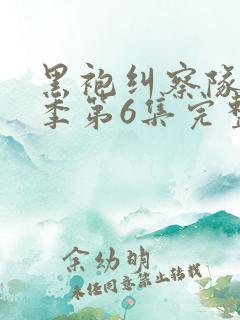 黑袍纠察队
季第6集完整
余幼明
未经同意禁止转载